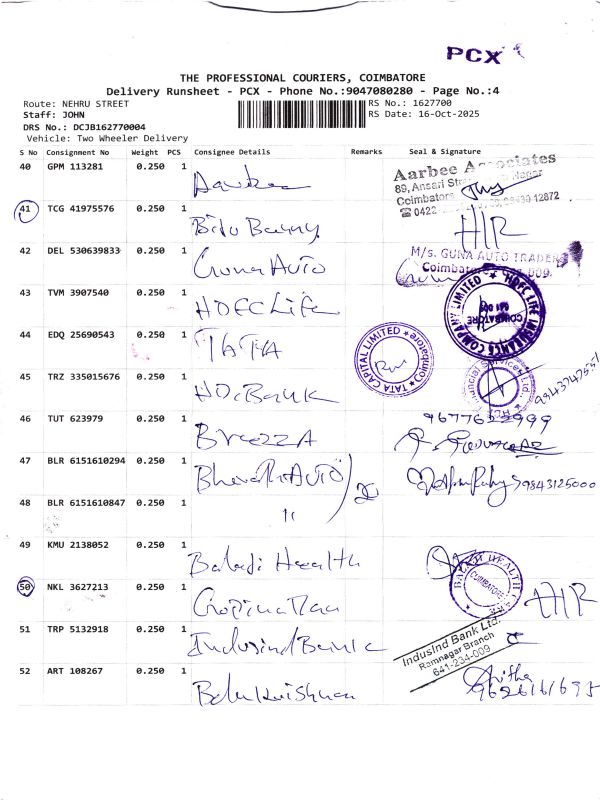 PCX
THE PROFESSIONAL COURIERS, COIMBATORE
Delivery Runsheet - PCX - Phone No.:9047080280 - Page No.:4
Route: NEHRU STREET
RS No.: 1627700
Staff: JOHN
RS Date: 16-Oct-2025
DRS No.: DCJB162770004
Vehicle: Two Wheeler Delivery
S No Consignment No Weight PCS Consignee Details Remarks Seal & Signature
40 GPM 113281 0.250 1
Aarbee Associates
89, Ansari
Coimbatore
0422
12872
41 TCG 41975576 0.250 1
42 DEL 530639833 0.250 1 Guna Auto
M/s. GUNA AUTO TRADERS
Coimbatore 009.
43 TVM 3907540 0.250 1 HDFC Life
HDFC LIFE INSURANCE COMPANY LIMITED
COIMBATORE
641 009
44 EDQ 25690543 0.250 1 TATA
TATA CAPITAL LIMITED Coimbatore
45 TRZ 335015676 0.250 1
Financial Services Ltd.
46 TUT 623979 0.250 1 BreezzA
47 BLR 6151610294 0.250 1 Bharath AUTO
9843125000
48 BLR 6151610847 0.250 1 11
49 KMU 2138052 0.250 1 Balaji Health
HEALTH
COIMBATORE
50 NKL 3627213 0.250 1
51 TRP 5132918 0.250 1 Indusind Bank
IndusInd Bank Ltd.
Ramnagar Branch
641-234-009
52 ART 108267 0.250 1 Balakrishnan